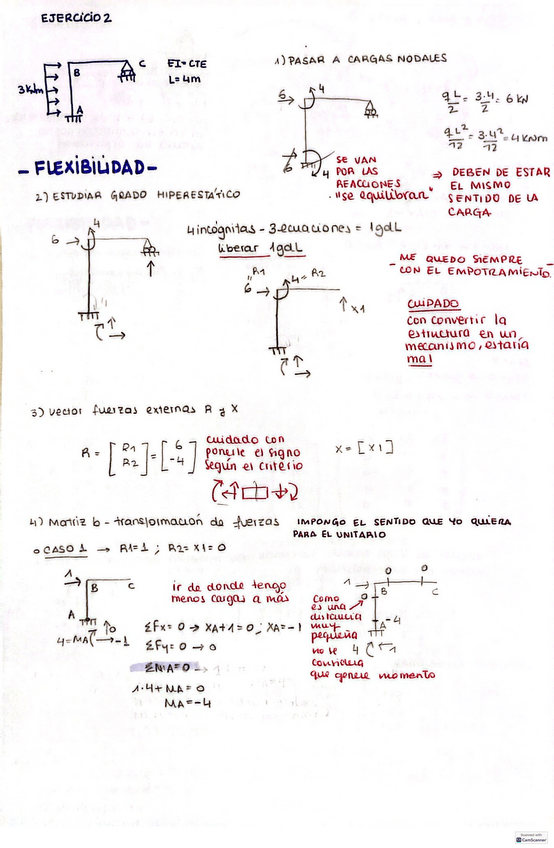 EJERCICIO 2
3 KN/m
B
C
A
EI = CTE
L = 4m
1) PASAR A CARGAS NODALES
6
4
6
4
qL/2 = 3·4/2 = 6 KN
qL²/12 = 3·4²/12 = 4 KNm
SE VAN
POR LAS
REACCIONES
"se equilibran"
⇒ DEBEN DE ESTAR
EL MISMO
SENTIDO DE LA
CARGA
- FLEXIBILIDAD -
2) ESTUDIAR GRADO HIPERESTÁTICO
6
4
4 incógnitas - 3 ecuaciones = 1gdL
liberar 1gdL
R1
6
4 = R2
X1
- ME QUEDO SIEMPRE
CON EL EMPOTRAMIENTO.
CUIDADO
con convertir la
estructura en un
mecanismo, estaría
mal
3) Vector fuerzas externas R y X
R = [R1 R2] = [6 -4]
cuidado con
ponerle el signo
según el criterio
X = [X1]
4) Matriz b - transformación de fuerzas
IMPONGO EL SENTIDO QUE YO QUIERA
PARA EL UNITARIO
o CASO 1 → R1 = 1 ; R2 = X1 = 0
1
B
C
A
0
4 = MA
-1
ir de donde tengo
menos cargas a más
ΣFx = 0 → XA + 1 = 0 ; XA = -1
ΣFy = 0 → 0
ΣMA = 0 →
1·4 + MA = 0
MA = -4
Como
es una
distancia
muy
pequeña
no se
considera
que genere momento
1
0
0
0
B
C
A
-4
4
1